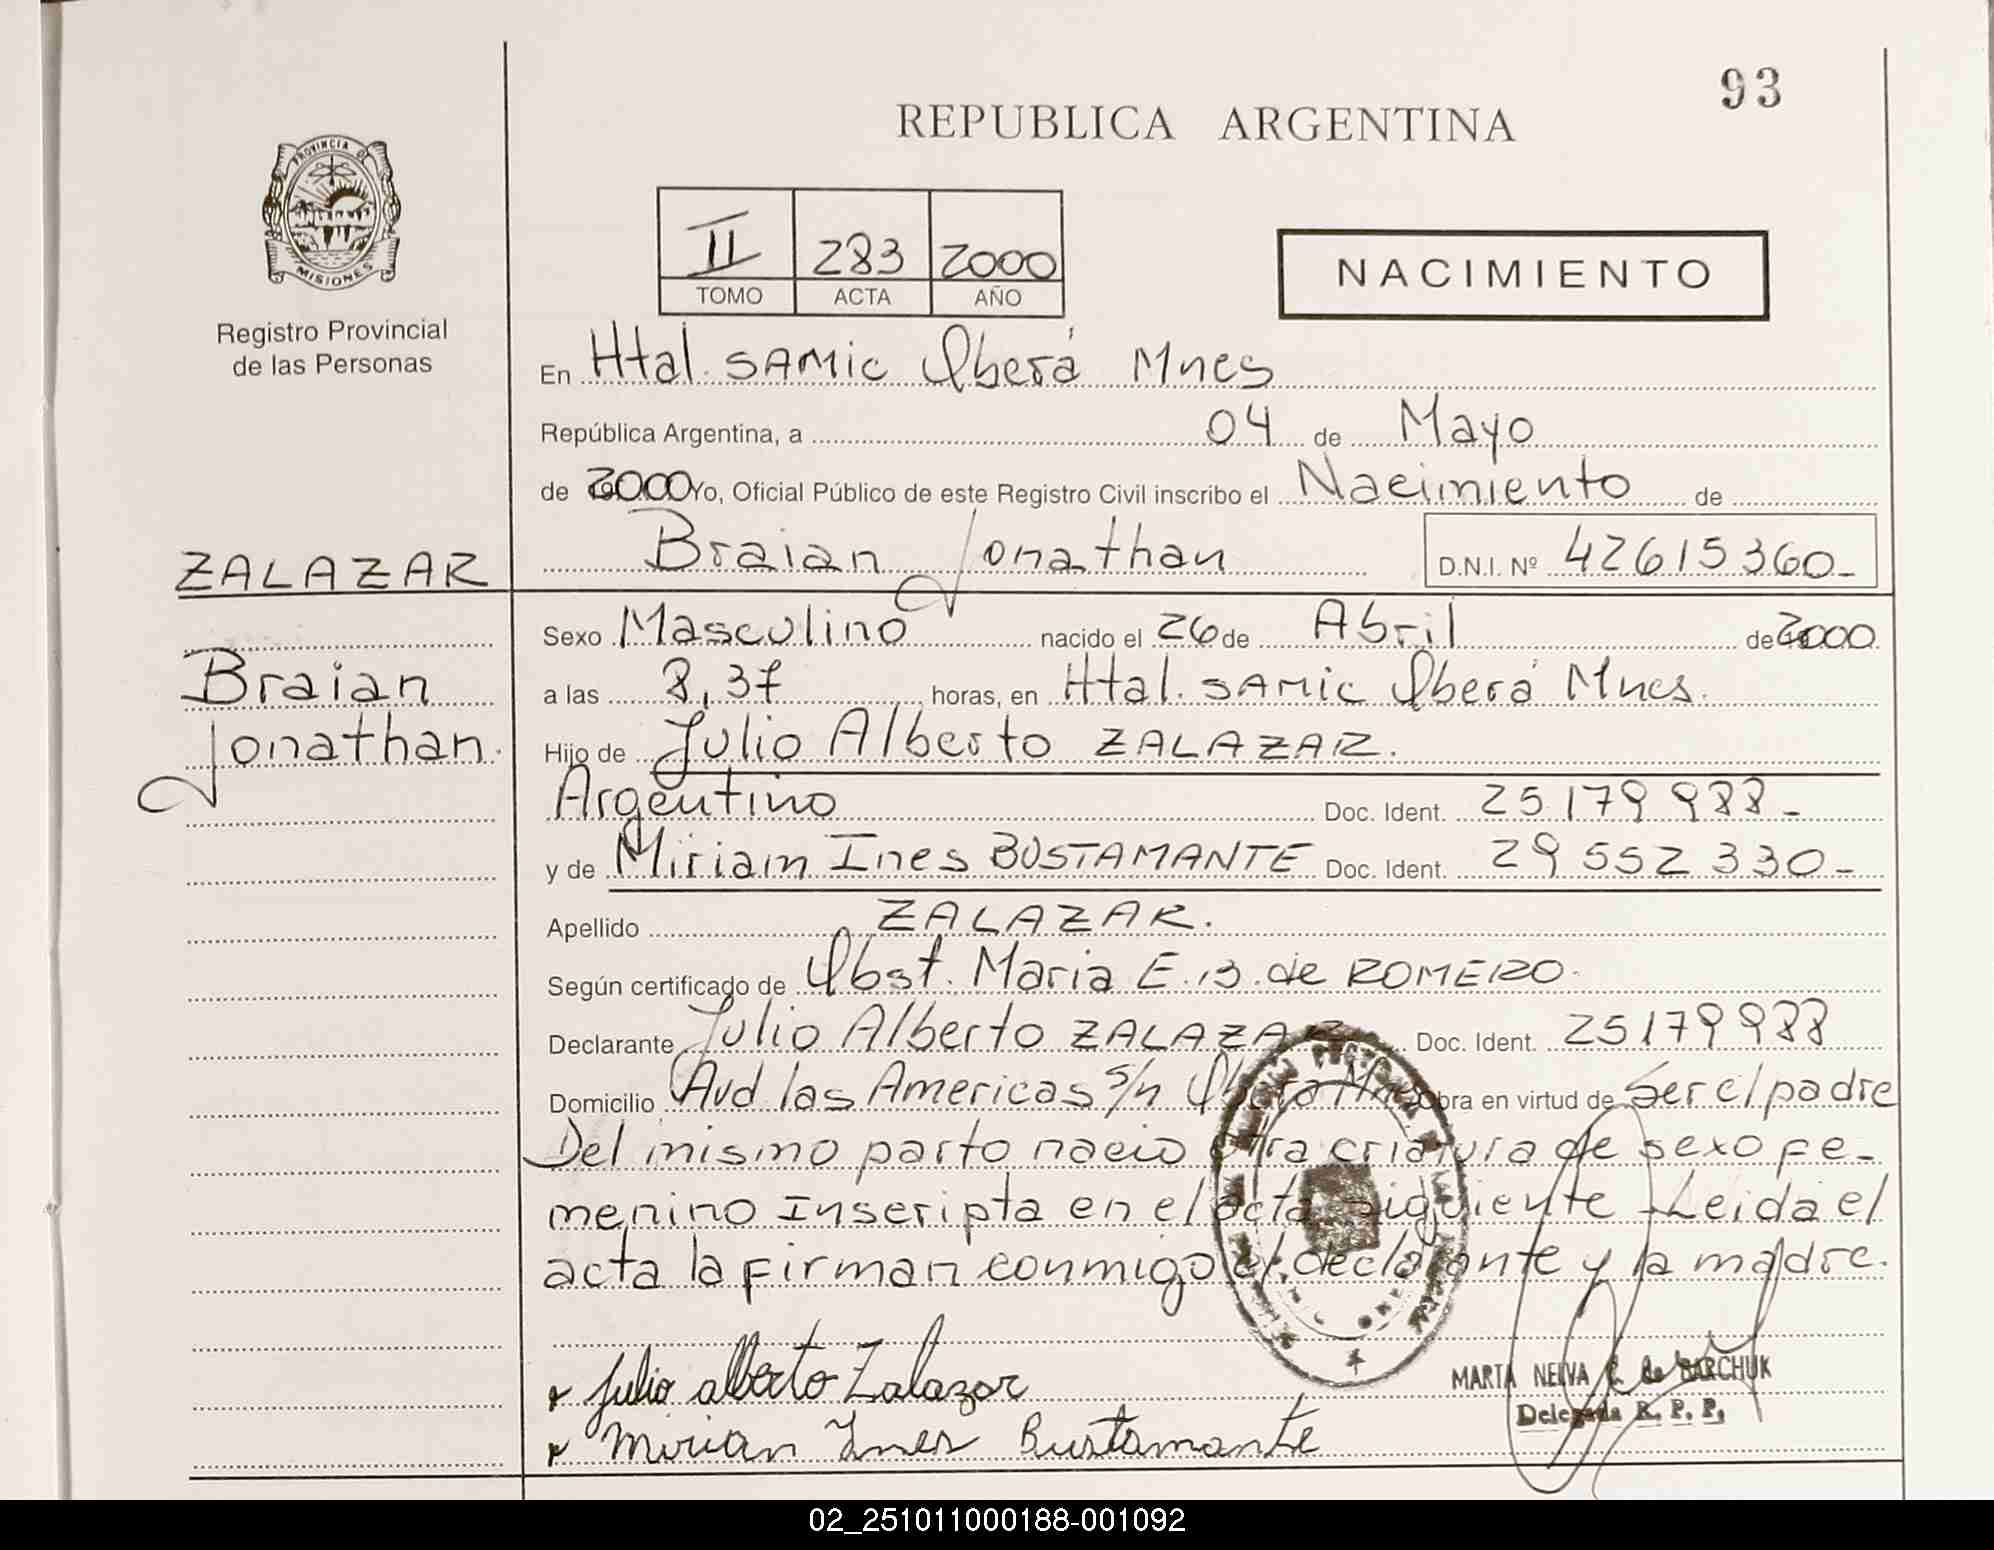 93
REPUBLICA ARGENTINA
PROVINCIA DE
MISIONES
Registro Provincial
de las Personas
II 283 2000
TOMO ACTA AÑO
NACIMIENTO
En Htal. SAMic Oberá Mnes
República Argentina, a 04 de Mayo
de 2000 Yo, Oficial Público de este Registro Civil inscribo el Nacimiento de
Braian Jonathan D.N.I. Nº 42615360-
ZALAZAR
Braian
Jonathan.
Sexo Masculino nacido el 26 de Abril de 2000
a las 8,37 horas, en Htal. SAMic Oberá Mnes.
Hijo de Julio Alberto ZALAZAR.
Argentino Doc. Ident. 25179988-
y de Miriam Ines BUSTAMANTE Doc. Ident. 29552330-
Apellido ZALAZAR.
Según certificado de Obst. Maria E. B. de ROMERO.
Declarante Julio Alberto ZALAZAR Doc. Ident. 25179988
Domicilio Avd las Americas s/n Oberá Mnes Obra en virtud de Ser el padre
Del mismo parto nacio otra criatura de sexo fe-
menino Inscripta en el acta siguiente. Leida el
acta la firman conmigo el declarante y la madre.
Julio alberto Zalazar
Mirian Ines Bustamante
MARTA NELVA de BARCHUK
Delegada R. P. P.
02_251011000188-001092